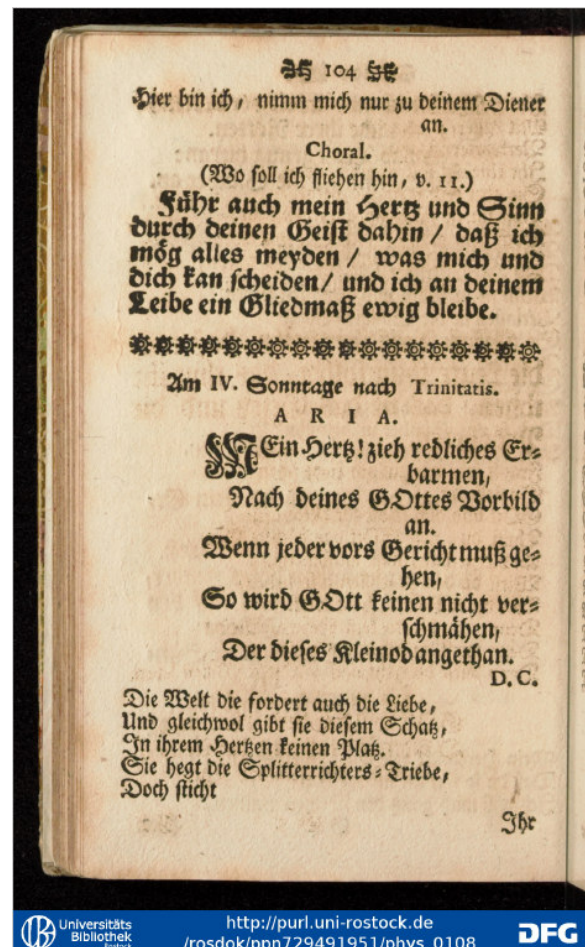 104
Hier bin ich, nimm mich nur zu deinem Diener
an.
Choral.
(Wo soll ich fliehen hin, v. 11.)
Führ auch mein Hertz und Sinn
durch deinen Geist dahin / daß ich
mög alles meyden / was mich und
dich kan scheiden / und ich an deinem
Leibe ein Gliedmaß ewig bleibe.
Am IV. Sonntage nach Trinitatis.
ARIA.
MEin Hertz! zieh redliches Er-
barmen,
Nach deines GOttes Vorbild
an.
Wenn jeder vors Gericht muß ge-
hen,
So wird GOtt keinen nicht ver-
schmähen,
Der dieses Kleinod angethan.
D. C.
Die Welt die fordert auch die Liebe,
Und gleichwol gibt sie diesem Schatz,
In ihrem Hertzen keinen Platz.
Sie hegt die Splitterrichters-Triebe,
Doch sticht
Ihr
Universitäts
Bibliothek
Rostock
http://purl.uni-rostock.de
/rosdok/ppn729491951/phys_0108
DFG